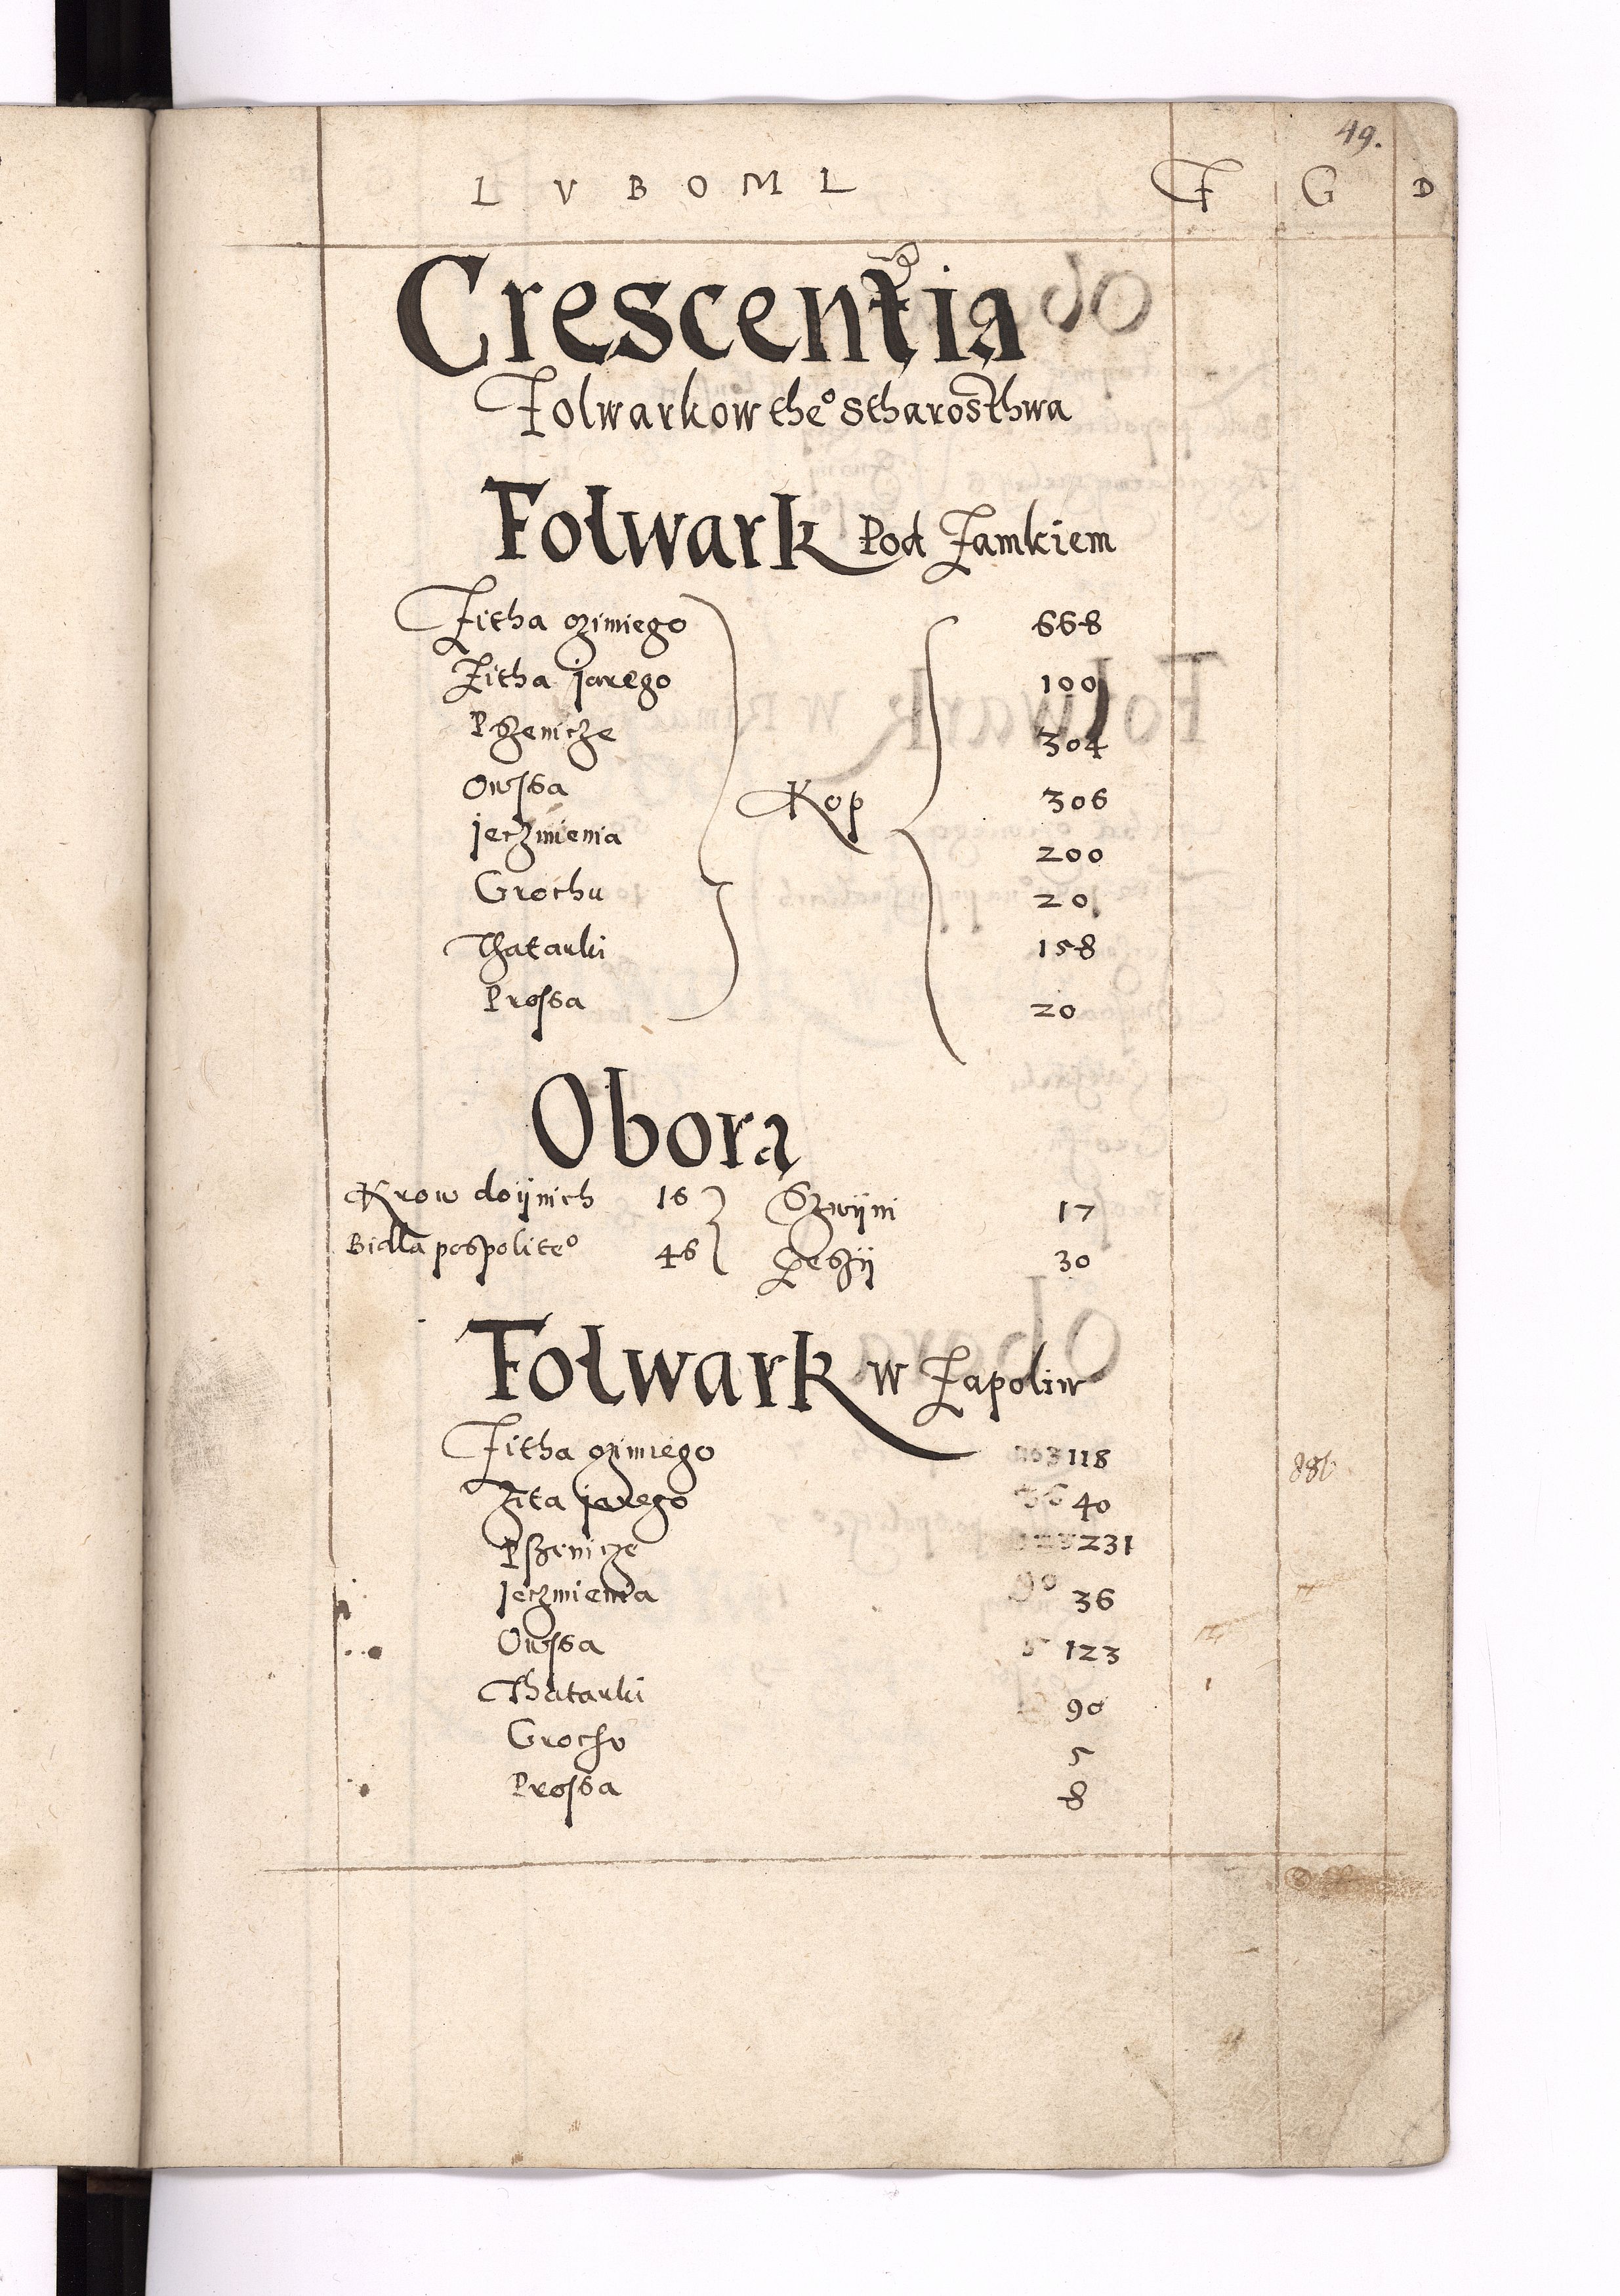 49.
L V B O M L F G D
Crescentia
Folwarkow the° Stharosthwa
Folwark Pod Zamkiem
Zitha ozimiego 668
Zitha jarego 100
Pszenicze 304
Owssa Kop 306
jeczmienia 200
Grochu 20
Thatarki 158
Prossa 20
Obora
Krow doijnich 16 Szwijni 17
Bidła pospolite° 46 Gesij 30
Folwark w Zapoliw
Zitha ozimiego 118
Zita jarego 40
Pszenicze 231
jeczmienia 36
Owssa 123
Thatarki 90
Grochv 5
Prossa 8